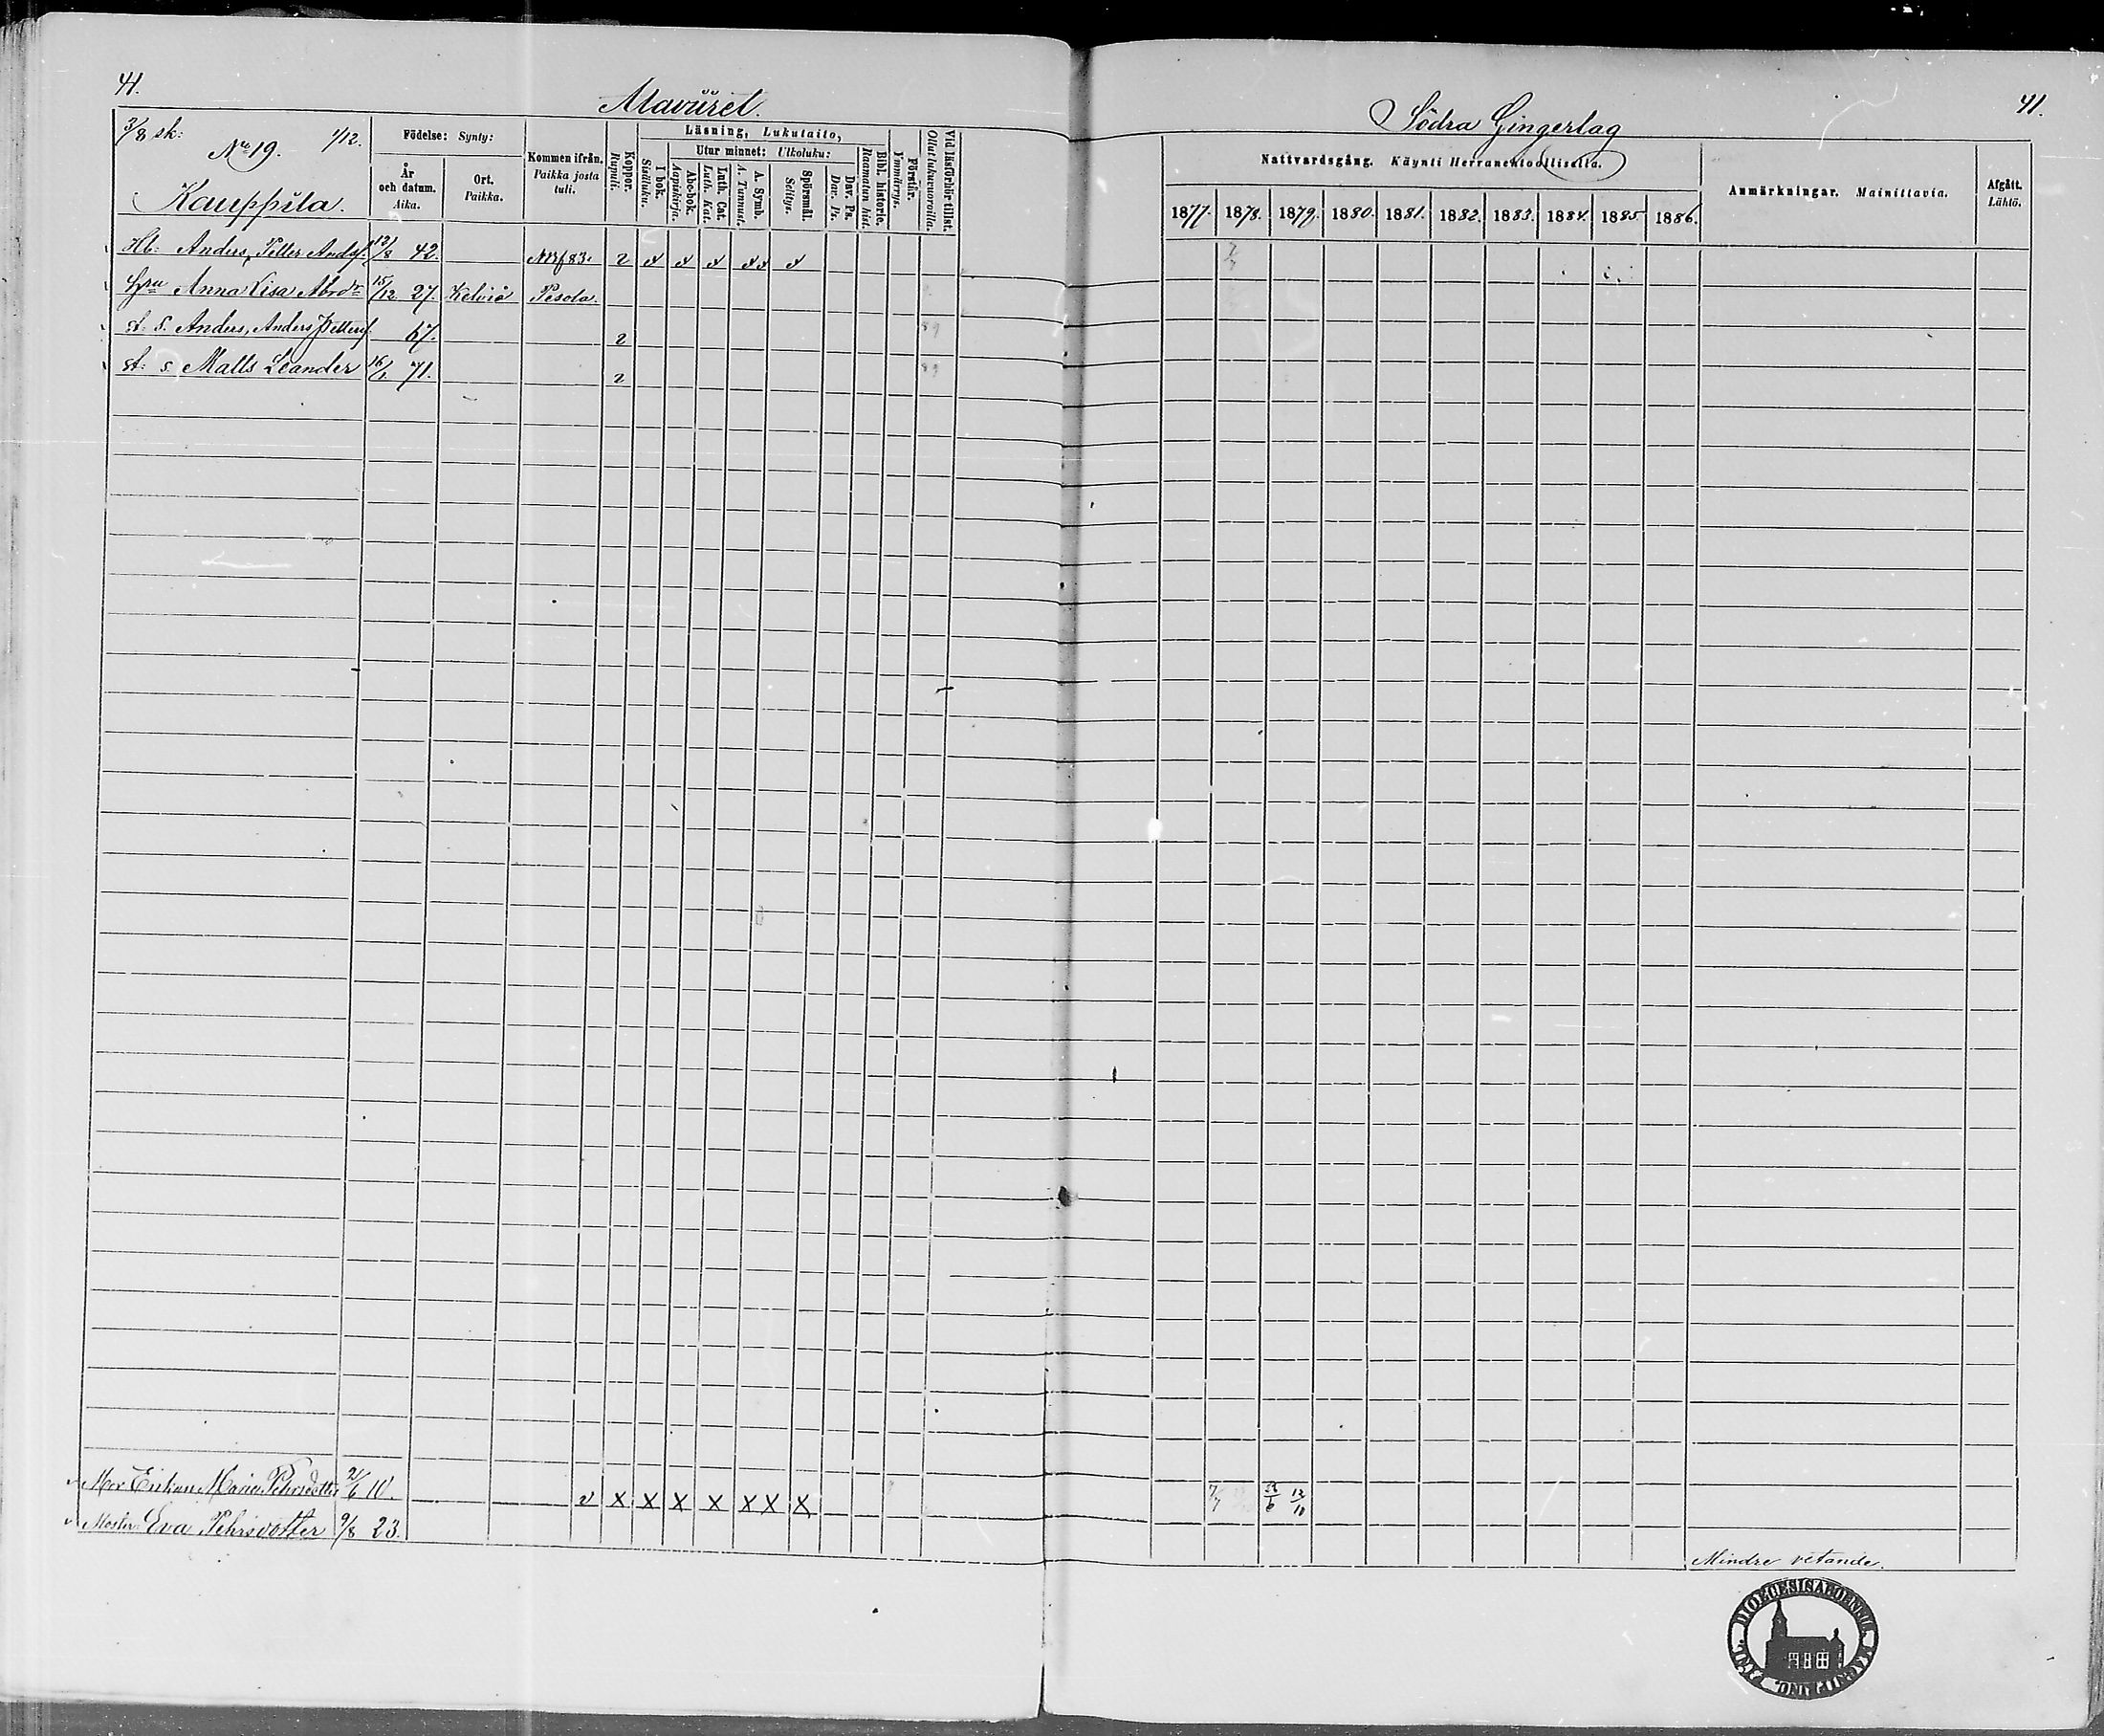 41.
Alaviiret.
3/8 sk: No 19. 1/12.
Kauppila.
Födelse: Synty:
År och datum. Aika.
Ort. Paikka.
Kommen ifrån. Paikka josta tuli.
Koppor. Rupuli.
Läsning, Lukutaito,
I bok. Sisäluku.
Utur minnet: Ulkoluku:
Abc-bok. Aapiskirja.
Luth. Cat. Luth. Kat.
A. Symb. A. Tunnust.
Spörsmål. Selitys.
Dav. Ps. Dav. Ps.
Bibl. historie. Raamatun hist.
Förstår. Ymmärrys.
Vid läsförhör tillst. Ollut lukuvuoroilla.
Hb: Anders, Petter Andsf. 12/8 42. 2
Hru Anna Lisa Abrdr 15/12 27. Kelviå Pesola.
A: S. Anders, Anders Petterss 67. 2 89
A: s. Matts Leander 16/1 71. 2 89
Maria Pehrsdotter 21/6 10. 2 X X X X X X X
Moster Eva Pehrsdotter 9/8 23.
41.
Södra Gingerlag
Nattvardsgång. Käynti Herranehtoollisella.
1877. 1878. 1879. 1880. 1881. 1882. 1883. 1884. 1885 1886.
Anmärkningar. Mainittavia.
Afgått. Lähtö.
7/7
7/7 12/10
Mindre vetande.